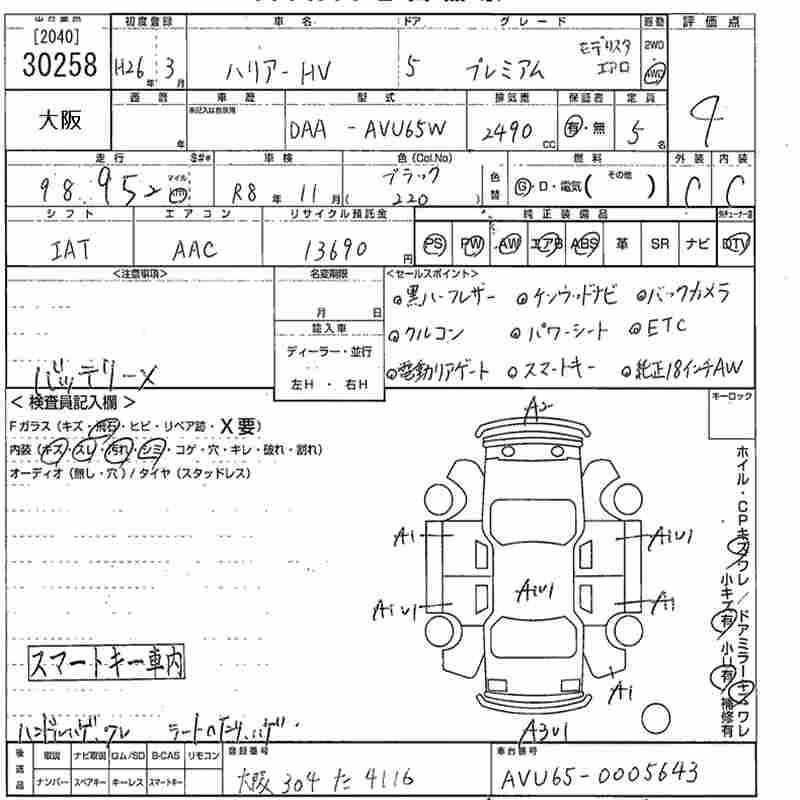 [2040]
30258
初度登録 車名 ドア グレード 駆動 評価点
H26年 3月 ハリアーHV 5 プレミアム モデリスタ エアロ 2WD 4WD 4
大阪
車歴 型式 排気量 保証書 定員
年 未記入は自家用 DAA - AVU65W 2490 CC 有・無 5名
走行 S#* 車検 色(Col.No) 色替 燃料 外装 内装
98,952 マイル km R8年 11月 ブラック (220) G・D・電気( その他 ) C C
シフト エアコン リサイクル預託金 純正装備品
IAT AAC 13690円 PS PW AW エアB ABS 革 SR ナビ DTV
<注意事項> 名変期限 <セールスポイント>
月 日
◎黒ハーフレザー ◎ケンウッドナビ ◎バックカメラ
輸入車
◎クルコン ◎パワーシート ◎ETC
ディーラー・並行
◎電動リアゲート ◎スマートキー ◎純正18インチAW
左H・右H
バッテリーX
<検査員記入欄> キーロック
Fガラス(キズ・飛石・ヒビ・リペア跡・X要)
内装(キズ・スレ・汚れ・シミ・コゲ・穴・キレ・破れ・割れ)
オーディオ(無し・穴)/タイヤ(スタッドレス)
A2
A1 A1U1
A1U1 A1U1 A1
A1
A3U1
ホイル・CPキズワレ/ドアミラーキズワレ
小キズ有 小U有 補修有
スマートキー車内
後送品 取説 ナビ取説 ロム/SD B-CAS リモコン 登録番号 車台番号
ナンバー スペアキー キーレス スマートキー 大阪 304 た 4116 AVU65-0005643